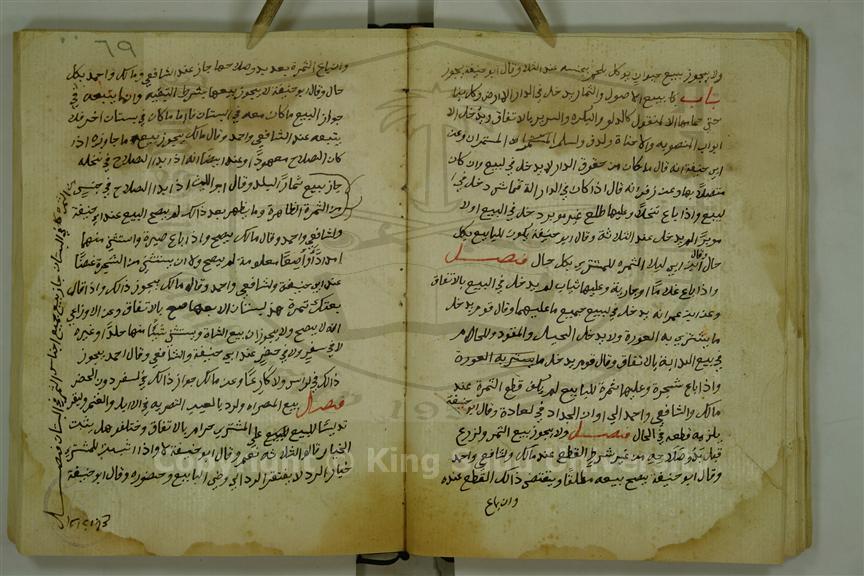 ولا يجوز بيع حيوان يوكل بلحم بجنسه عند الثلاثة وقال ابو حنيفة يجوز
باب بيع الاصول والثمار يدخل في الدار الارض وكل بنا
حتى حمامها الا المنقول كالدلو والبكرة والسرير بالاتفاق ويدخل الا
ابواب المنصوبة والاجنانة والرف والسلم المستمران وعن
ابي حنيفة انه قال ما كان من حقوق الدار لا يدخل في البيع وان كان
متصلا بها وعن زفر انه قال اذا كان في الدار الة قماش دخل في ا
لبيع واذا باع نخلا وعليها طلع غير موبر دخل في البيع او لا
موبرا لم يدخل عند الثلاثة وقال ابو حنيفة يكون للبايع بكل
حال وقال ابن ابي ليلا الثمرة للمشتري بكل حال فصل
واذا باع غلاما او جارية وعليها ثياب لم يدخل في البيع بالاتفاق
وعن ابن عمر انه يدخل في البيع جميع ما عليهما وقال قوم يدخل
ما يستر به العورة ولا يدخل الحبل والمقود واللجام
في بيع الدابة بالاتفاق وقال قوم يدخل ما يستر به العورة
واذا باع شجرة وعليها ثمرة للبايع لم يكلف قطع الثمرة عند
مالك والشافعي واحمد الى اوان الجداد في العادة وقال ابو حنيفة
يلزمه قطعه في الحال فصل ولا يجوز بيع الثمر والزرع
قبل بدو صلاحه من غير شرط القطع عند مالك والشافعي واحمد
وقال ابو حنيفة يصح بيعه مطلقا ويقتضي ذالك القطع عنده
وان باع
٦٩
وان باع الثمرة بعد بدو صلاحها جاز عند الشافعي ومالك واحمد بكل
حال وقال ابو حنيفة لا يجوز بيعها بشرط التبقية وانما يتبعه في
جواز البيع ما كان معه في البستان فاما ما كان في بستان اخر فلا
يتبعه عند الشافعي واحمد وقال مالك يجوز بيعه ما جاوره اذا
كان الصلاح معهودا وعنه ايضا انه اذا بدا الصلاح في نخلة
جاز بيع ثمار البلد وقال الليث اذا بدا الصلاح في جنس
من الثمرة الظاهرة وما يظهر بعد ذالك لم يصح البيع عند ابو حنيفة
والشافعي واحمد وقال مالك يصح واذا باع صبرة واستثنى منها
امدادا او اصعا معلومة لم يصح ولا ان يستثني من الشجرة غصنا
عند ابي حنيفة والشافعي واحمد وقال مالك يجوز ذالك واذا قال
بعتك ثمرة هذا البستان الا بعها صح بالاتفاق وعن الاوزاعي
انه لا يصح ولا يجوز ان بيع الشاة ويستثني شيئا منها جلدا وغيره
لا في سفر ولا في حضر عند ابي حنيفة والشافعي وقال احمد يجوز
ذالك في الراس والاكارع وعن مالك جواز ذالك في السفر دون الحضر
فصل بيع المصراه والرد بالعيب التصرية في الابل والغنم والبقر
تدليسا للبيع على المشتري حرام بالاتفاق وختلفو هل يثبت
الخيار قال الثلاثة نعم وقال ابو حنيفة لا واذا ثبت للمشتري
خيار الرد لا يفتقر الرد الى رضى البايع وحضوره وقال ابو حنيفة
من الثمرة كافي البستان جاز بيع جميع اجناس الثمر في البستان فصل
Copyright © King Saud University